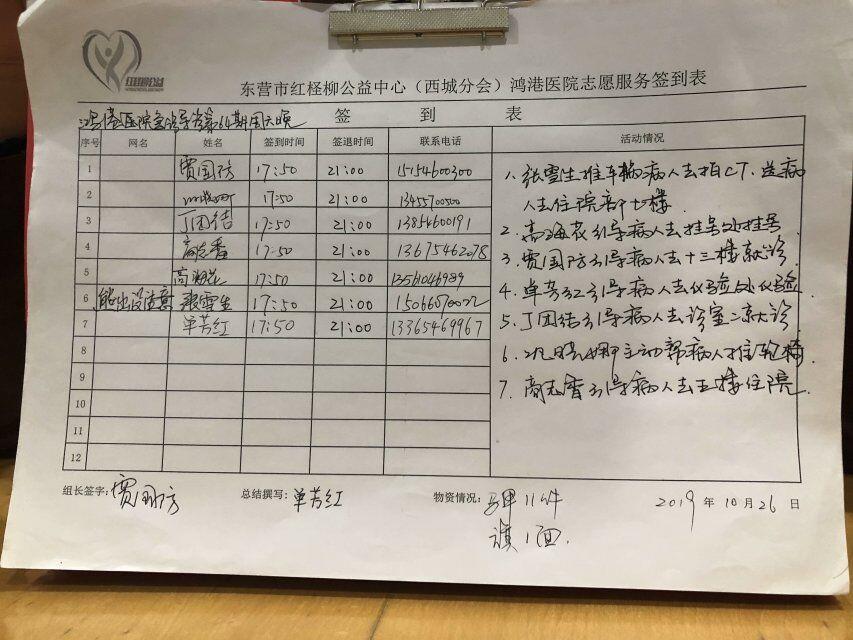 红柽柳公益
东营市红柽柳公益中心（西城分会）鸿港医院志愿服务签到表
签 到 表
鸿港医院 期周六晚
序号 网名 姓名 签到时间 签退时间 联系电话 活动情况
1 贾国防 17:50 21:00 15154600300
2 17:50 21:00 13455700500
3 丁团结 17:50 21:00 13854600191
4 商志香 17:50 21:00 13675462078
5 高海花 17:50 21:00 13561046989
6 熊出没注意 张雪生 17:50 21:00
7 单芳红 17:50 21:00 13365469967
8
9
10
11
12
1、张雪生推车辆病人去拍CT、送病
人去住院部十七楼
2、高海花引导病人去挂号处挂号
3、贾国防引导病人去十三楼就诊
4、单芳红引导病人去化验处化验
5、丁团结引导病人去诊室二就诊
6、主动帮病人推轮椅.
7、商志香引导病人去五楼住院
组长签字: 贾国防 总结撰写: 单芳红 物资情况: 马甲11件 2019年10月26日
旗1面.